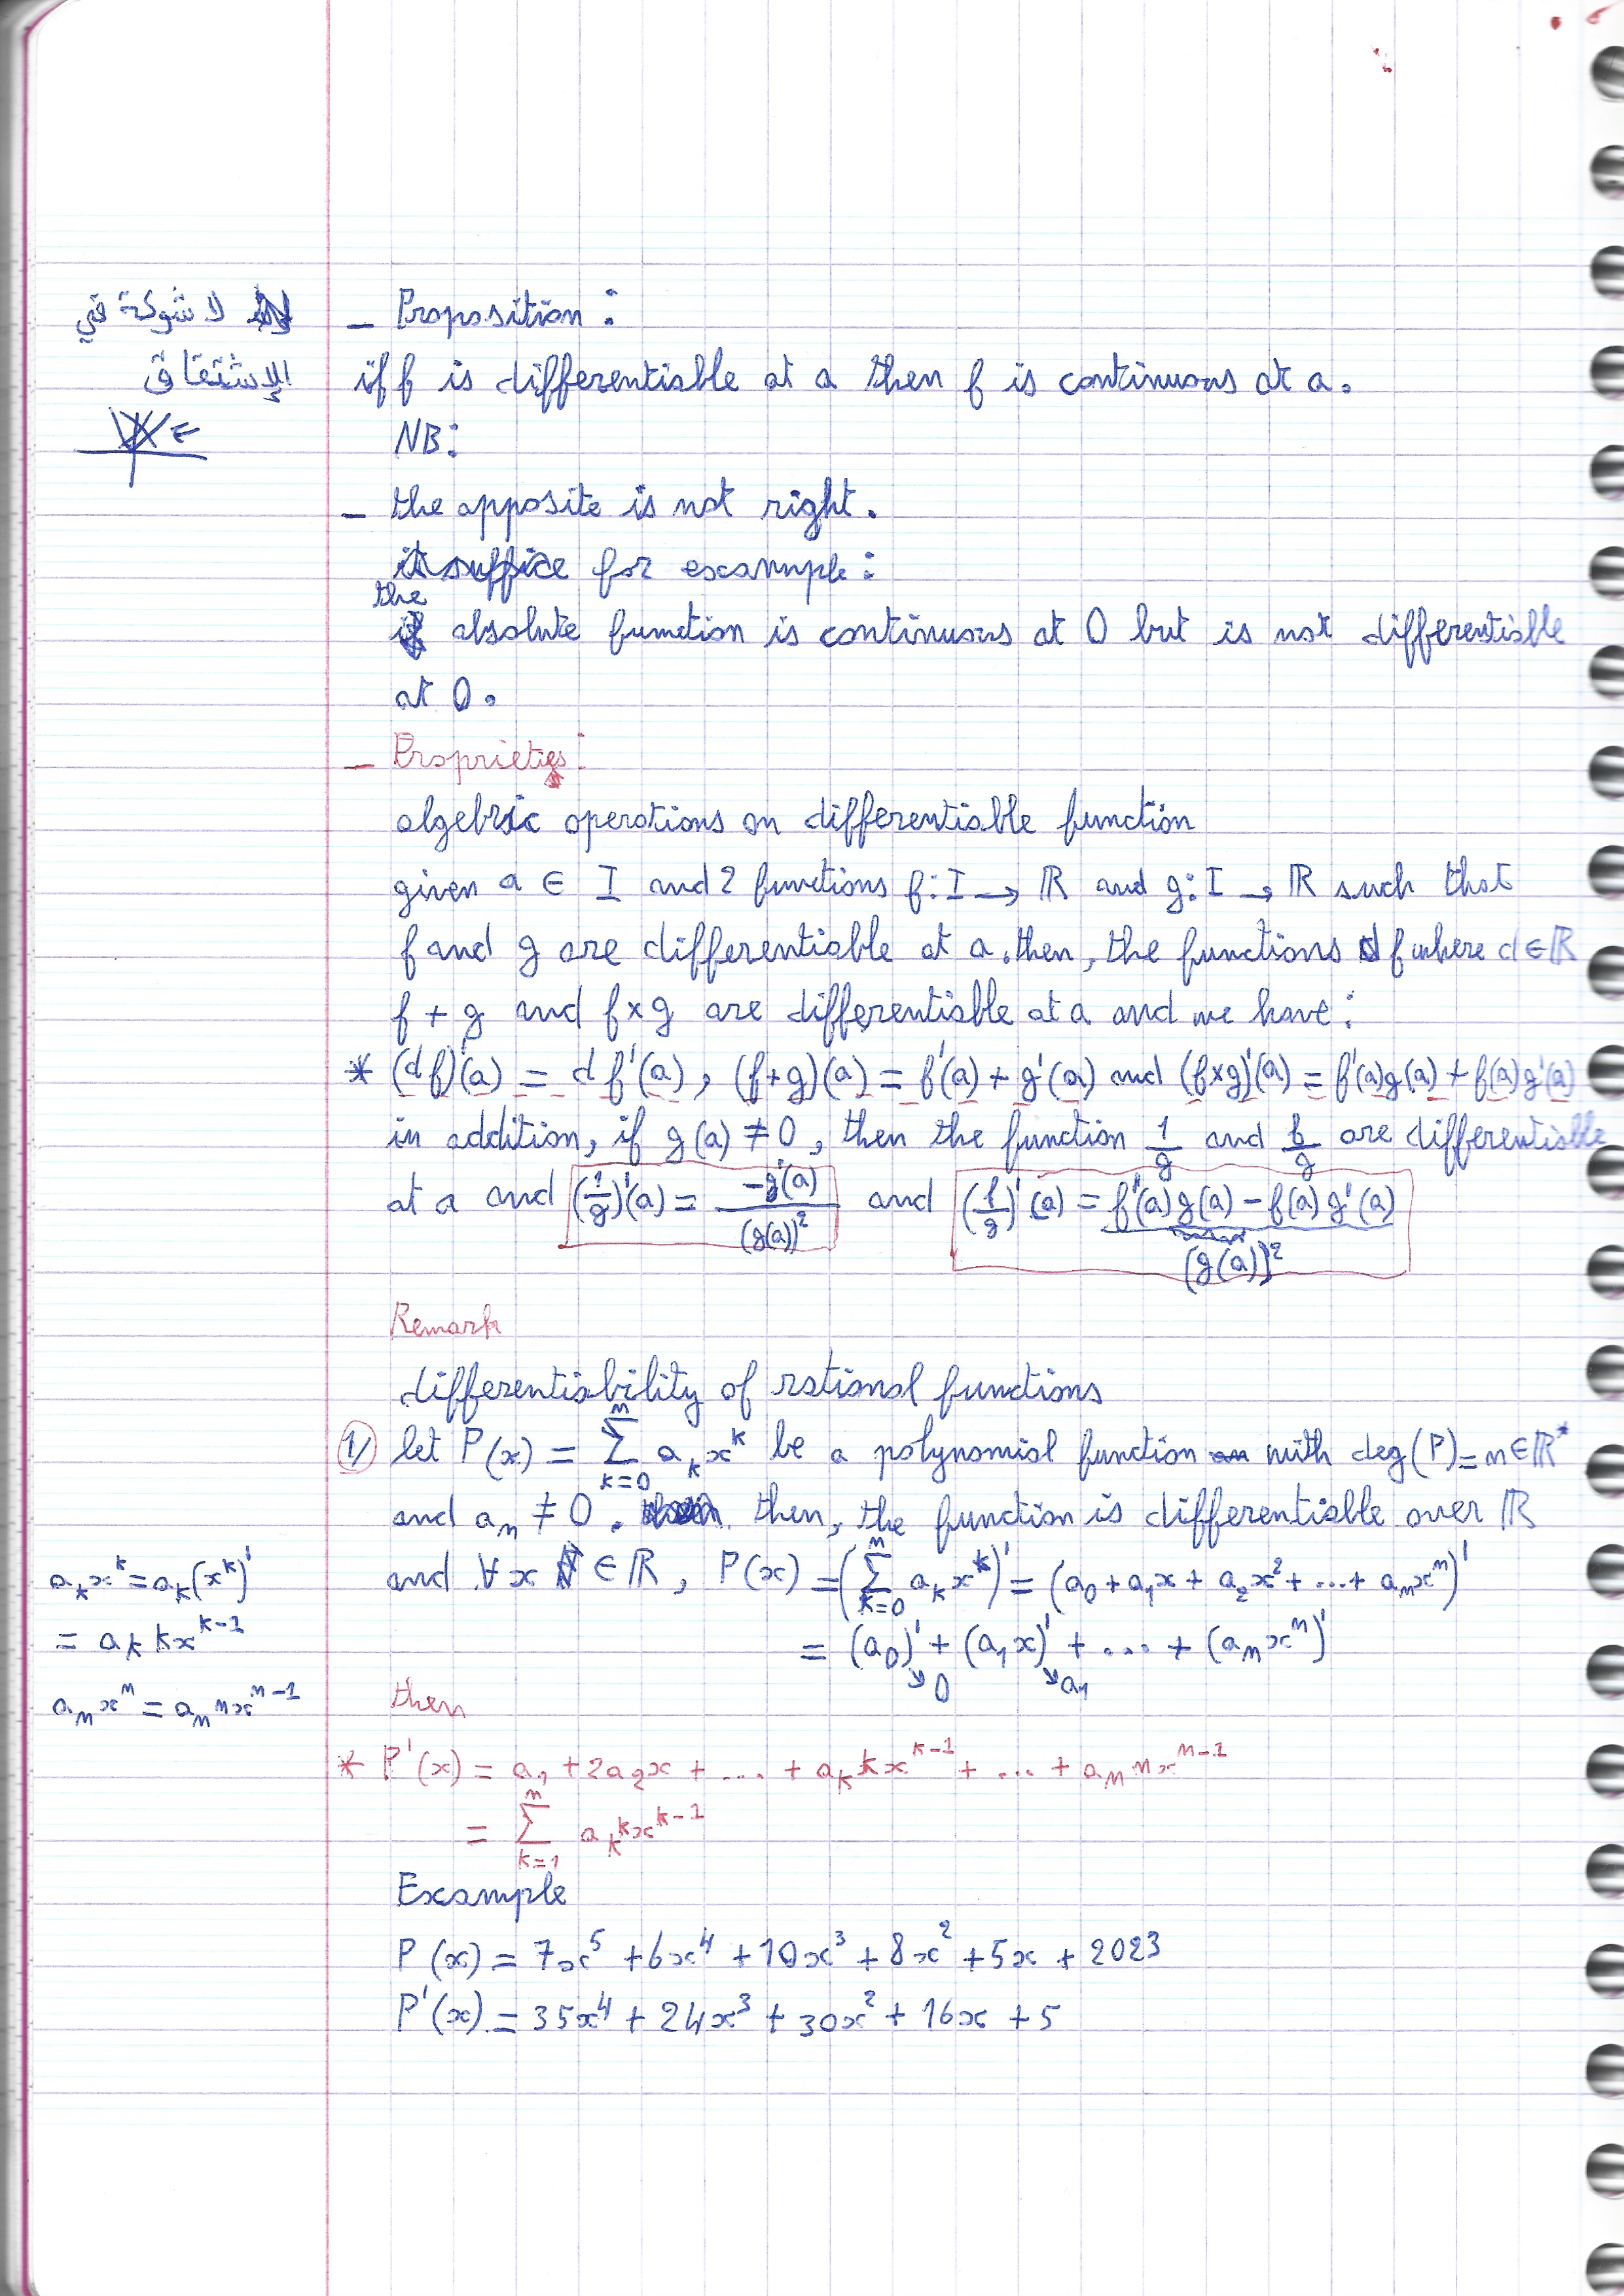 لا شوكة في
الإشتقاق
- Proposition :
if f is differentiable at a then f is continuous at a.
NB:
- the apposite is not right.
it suffice for example :
the absolute function is continuous at 0 but is not differentiable
at 0.
- Proprieties :
algebric operations on differentiable function
given a ∈ I and 2 functions f: I → ℝ and g: I → ℝ such that
f and g are differentiable at a. then, the functions df where d ∈ ℝ
f + g and f×g are differentiable at a and we have :
* (df)'(a) = d f'(a), (f+g)(a) = f'(a) + g'(a) and (f×g)'(a) = f'(a)g(a) + f(a)g'(a)
in addition, if g(a) ≠ 0, then the function 1/g and f/g are differentiable
at a and (1/g)'(a) = -g'(a)/(g(a))² and (f/g)'(a) = f'(a)g(a) - f(a)g'(a)/(g(a))²
Remark
differentiability of rational functions
1/ let P(x) = ∑_{k=0}^{n} a_k x^k be a polynomial function with deg(P) = n ∈ ℝ*
and a_n ≠ 0. then, the function is differentiable over ℝ
and ∀x ∈ ℝ, P(x) = (∑_{k=0}^{n} a_k x^k)' = (a_0 + a_1x + a_2x² + ... + a_nx^n)'
= (a_0)' + (a_1x)' + .... + (a_nx^n)'
↘0 ↘a_1
a_k x^k = a_k(x^k)'
= a_k kx^{k-1}
a_n x^n = a_n nx^{n-1}
then
* P'(x) = a_1 + 2a_2x + .... + a_k kx^{k-1} + ... + a_n nx^{n-1}
= ∑_{k=1}^{n} a_k kx^{k-1}
Example
P(x) = 7x⁵ + 6x⁴ + 10x³ + 8x² + 5x + 2023
P'(x) = 35x⁴ + 24x³ + 30x² + 16x + 5